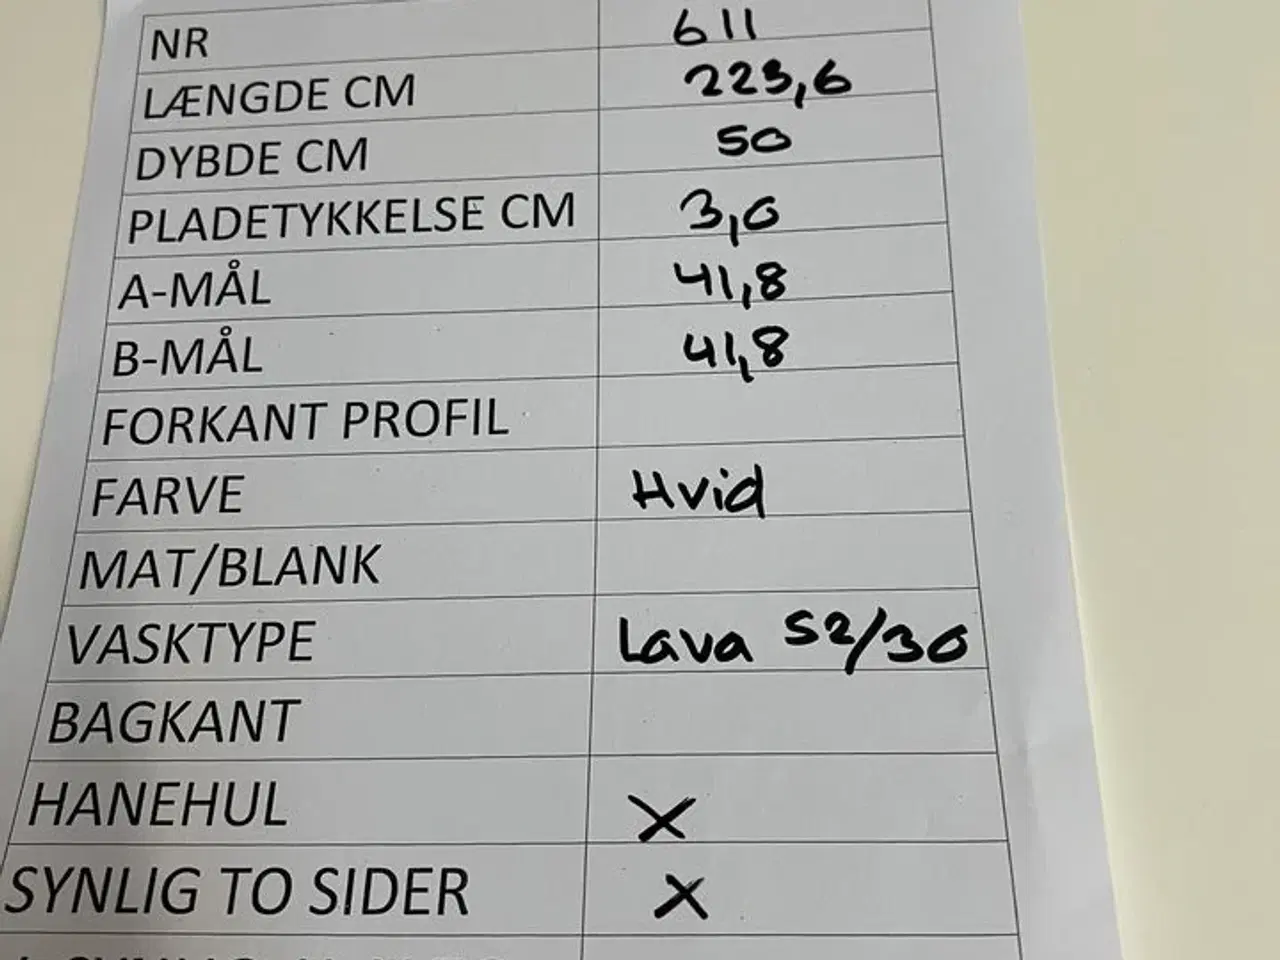 NR 611
LÆNGDE CM 223,6
DYBDE CM 50
PLADETYKKELSE CM 3,0
A-MÅL 41,8
B-MÅL 41,8
FORKANT PROFIL
FARVE Hvid
MAT/BLANK
VASKTYPE Lava 52/30
BAGKANT
HANEHUL X
SYNLIG TO SIDER X